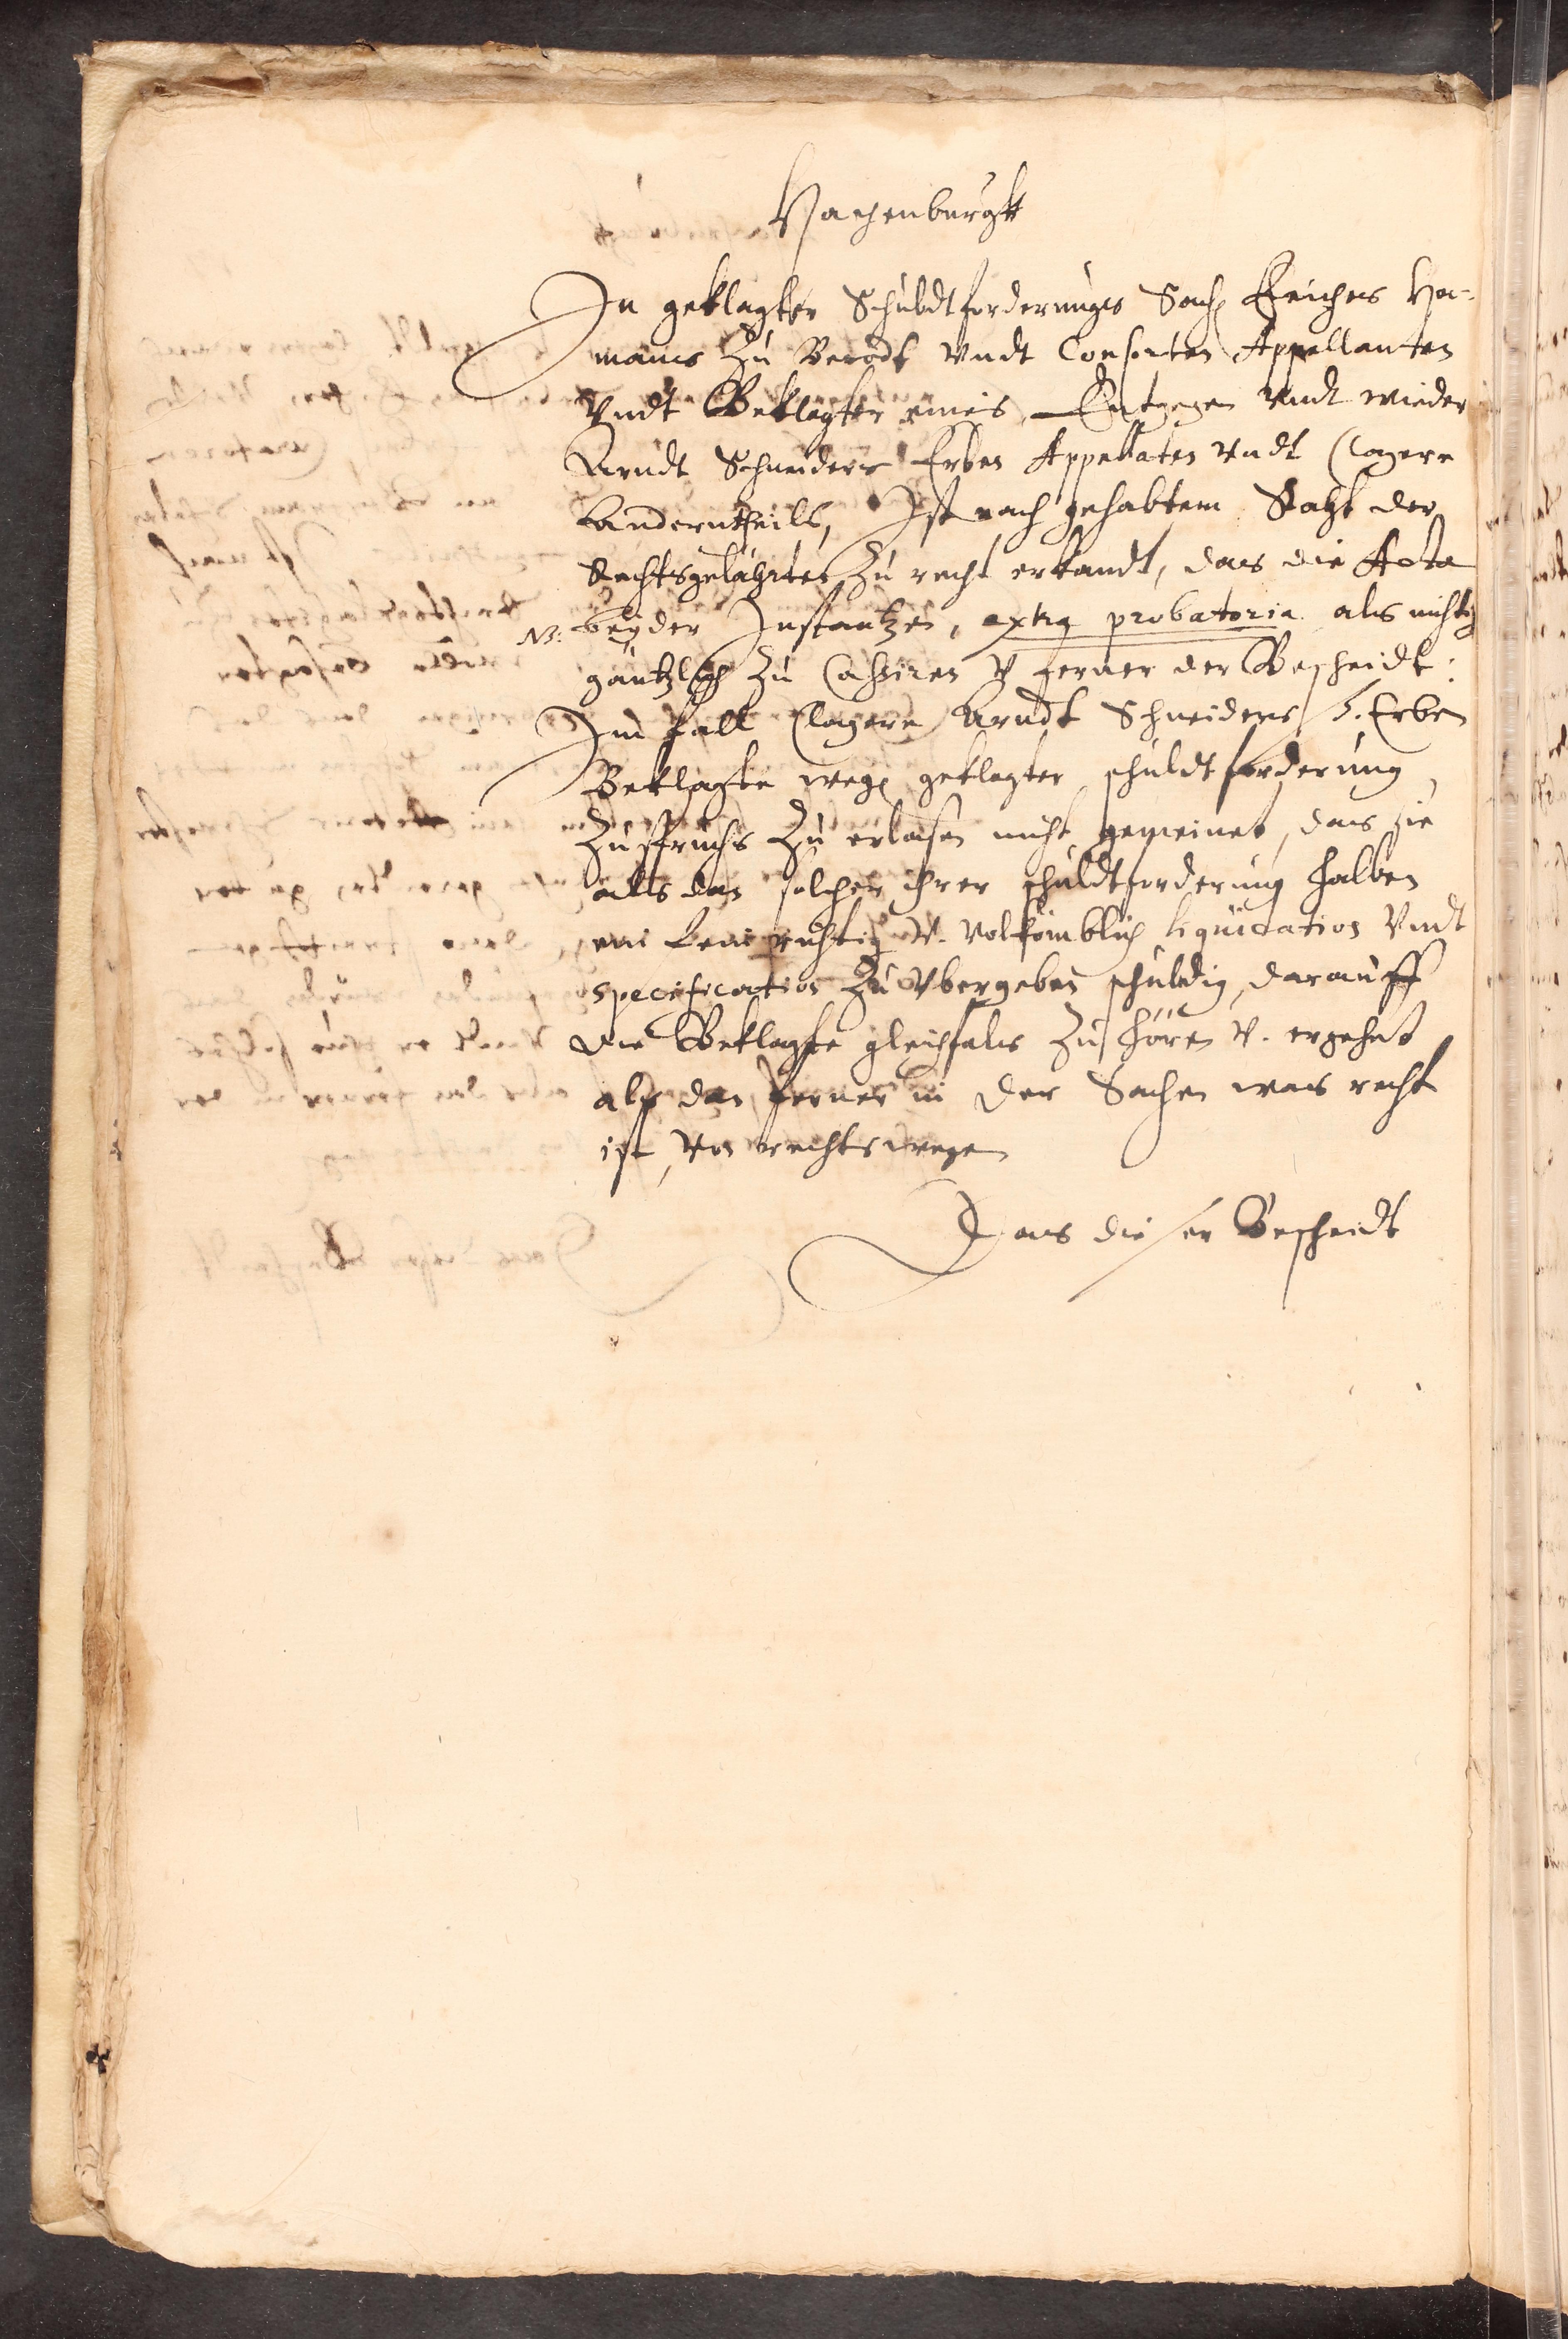 Hachenburgk
In geklagter Schuldtforderungs Sach Reiches Ha-
manns Zu Berodt Vndt Consorten Appellanten
Vndt Beklagter eines, Entgegen Vndt wieder
Arndt Schneiders Erben Appellaten Vndt Clagere
anderntheils, Ist nach gehabtem Raht der
Rechtsgelährten Zu recht erkandt, das die Acta
NB: beyder Instantzen, extra probatoria als nichtig
gäntzlich Zu Cassiren V ferner der Bescheidt:
Im fall Clagere Arndt Schneiders s. Erben
Beklagte wegen geklagter schuldtforderung
Zuspruchs Zu erlassen nicht gemeinet, das sie
alls dan solcher ihrer schuldtforderung halben
ein richtig V. Volkömblich liquidation Vndt
specification Zu Vbergeben schuldig, darauff
die Beklagte gleichfals Zu hören V. ergehet
alß dan ferner in der Sachen was recht
ist, Von rechts wegen
Das dieser Bescheidt